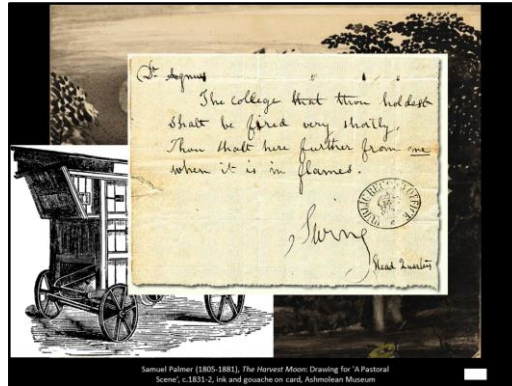 Dr
The college that thou holdest
shall be fired very shortly.
Thou shalt here further from me
when it is in flames.
Swing
Head Quarters
PUBLIC RECORD OFFICE
Samuel Palmer (1805-1881), The Harvest Moon: Drawing for 'A Pastoral
Scene', c.1831-2, ink and gouache on card, Ashmolean Museum